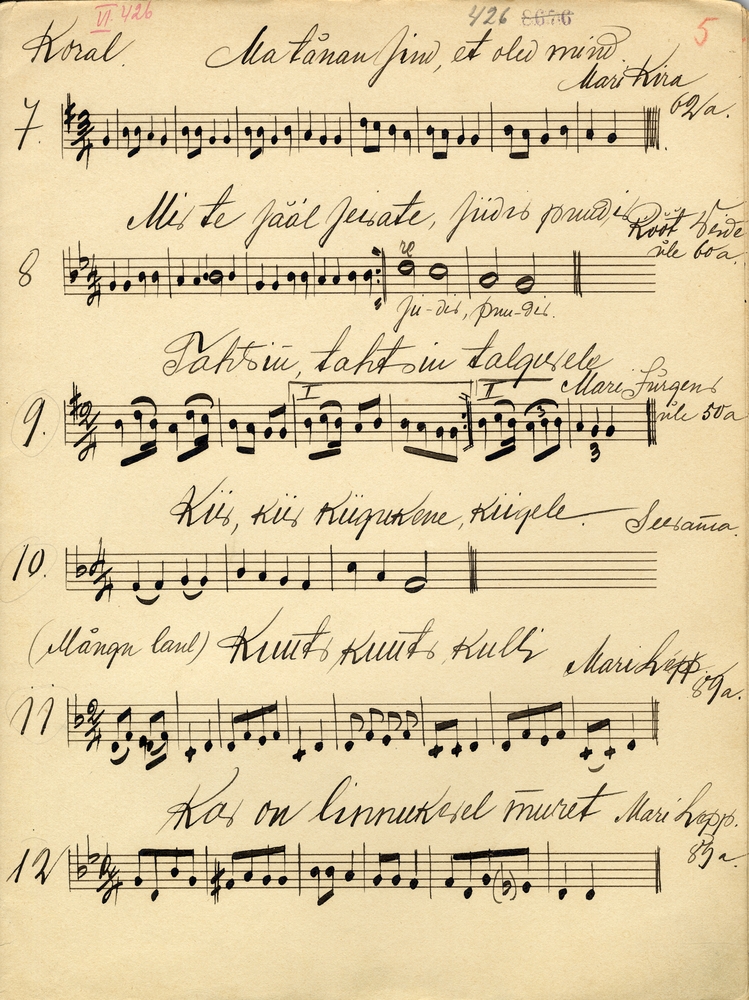 VI. 426
426 8656
5
Koral. Ma tånan sind, et oled mind
Mari Kira
62/a.
7.
Mis te sääl seisate, siidis pruudis
Rööt Veide
üle 60 a.
8
re
Si-dis, pruu-dis.
Tahtsin, tahtsin talgusele
Mari Jürgens
üle 50 a
9.
I
II
3
3
Kiis, kiis kiigukene, kiigele
Seesama.
10.
(Mångu laul) Kuuts kuuts kulli
Mari Lepp.
89 a.
11
Kas on linnukesel muret
Mari Lepp.
89 a.
12